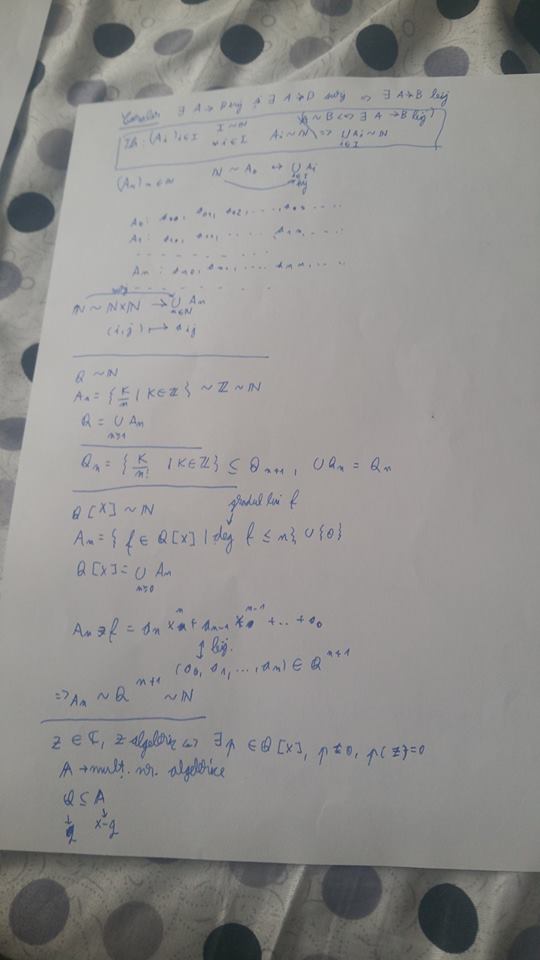 ∃ A → B inj și ∃ A → B surj ⇔ ∃ A → B bij
A ~ B ⇔ ∃ A → B bij
Th: (Ai)i∈I I ~ ℕ ∀ i ∈ I Ai ~ ℕ ⇒ ∪ Ai ~ ℕ
i∈I
(An)n∈ℕ ℕ ~ A0 ↪ ∪ Ai
i∈I
inj
A0: a00, a01, a02, ..., a0n ....
A1: a10, a11, ..... a1n, ....
- - - - - - - - - -
An: an0, an1, .... ann, ....
- - - - - - - - - -
ℕ ~ ℕ×ℕ → ∪ An
n∈ℕ
(i,j) ↦ aij
Q ~ ℕ
An = { k/n | k ∈ ℤ } ~ ℤ ~ ℕ
Q = ∪ An
n≥1
Qn = { k/n! | k ∈ ℤ } ⊆ Qn+1, ∪ Qn = Qn
Q[X] ~ ℕ gradul lui f
An = { f ∈ Q[X] | deg f ≤ n } ∪ {0}
Q[X] = ∪ An
n≥0
An ∋ f = an xⁿ + an-1 xⁿ⁻¹ + ... + a0
↕ bij.
(a0, a1, ..., an) ∈ Qⁿ⁺¹
⇒ An ~ Qⁿ⁺¹ ~ ℕ
z ∈ ℂ, z algebric ⇔ ∃ p ∈ Q[X], p ≠ 0, p(z)=0
A → mult. nr. algebrice
Q ⊆ A
↓ ↓
q x-q